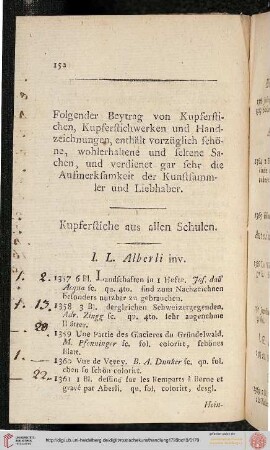 152
Folgender Beytrag von Kupfersti-
chen, Kupferstichwerken und Hand-
zeichnungen, enthält vorzüglich schö-
ne, wohlerhaltene und seltene Sa-
chen, und verdienet gar sehr die
Aufmerksamkeit der Kunstsamm-
ler und Liebhaber.
Kupferstiche aus allen Schulen.
I. L. Alberli inv.
1. 2. 1357 6 Bl. Landschaften in 1 Hefte. Jos. dall
Acqua sc. qu. 4to. sind zum Nachzeichnen
besonders nutzbar zu gebrauchen.
1. 13. 1358 3 Bl. dergleichen Schweizergegenden.
Adr. Zingg sc. qu. 4to. sehr angenehme
Blätter.
1359 Une Partie des Glacieres du Gründelwald.
M. Pfenninger sc. fol. colorirt, schönes
Blatt.
1360 Vue de Vevey. B. A. Dunker sc. qu. fol.
eben so schön colorirt.
22. 1361 1 Bl. dessiné sur les Remparts à Berne et
gravé par Aberli, qu. fol. colorirt, desgl.
Hein-
UNIVERSITÄTS-
BIBLIOTHEK
HEIDELBERG